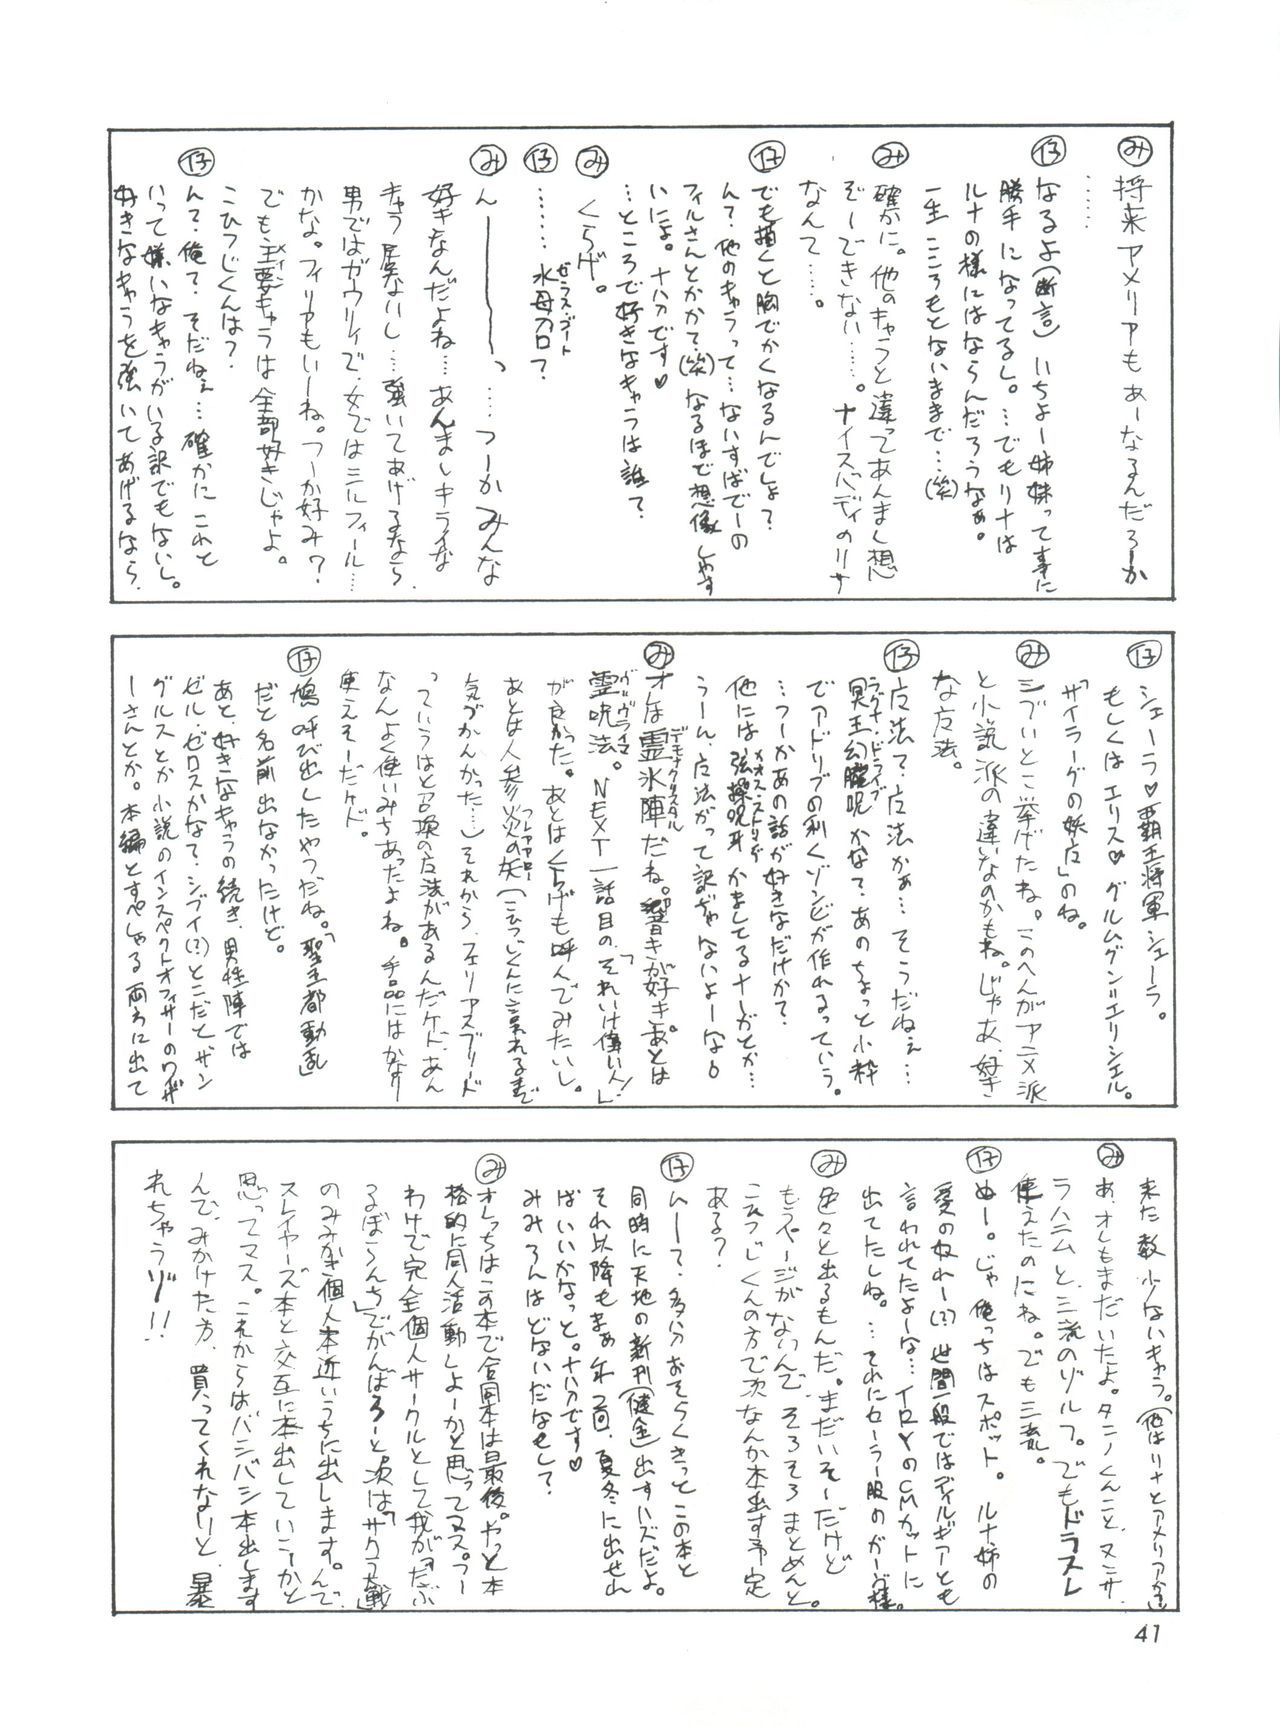 み 将来アメリアもあーなるんだろーか
……
仔 なるよ(断言)いちょー姉妹って事に
勝手になってるし。…でもリナは
ルナの様にはならんだろうなぁ。
一生こころもとないままで…(笑)
み 確かに。他のキャラと違ってあんまし想
ぞーできない……。ナイスバディのリナ
なんて……。
仔 でも描くと胸でかくなるんでしょ?
んで、他のキャラって…ないすばでーの
フィルさんとかかて(笑)なるほで想像しやす
いによ。十八分です♡
…ところで好きなキャラは誰て
み くらげ。
仔 ……水母召口て
ゼラス・ゴート
み んーーーーっ…つーかみんな
好きなんだよね…あんましキライな
キャラ居ないし…強いてあげるなら
男ではガウリイで、女ではミルフィール…
かな。フィリアもいーね。つーか好み?
でも主要キャラは全部好きじゃよ。
メイン
こひつじくんは?
仔 んて俺てそだねぇ…確かにこれと
いって嫌いなキャラがいる訳でもないし。
好きなキャラを強いてあげるなら、
仔 シェーラ♡覇王将軍シェーラ。
もしくはエリス♡グルムグン=エリシエル。
「サイラーグの妖広」のね。
み シブいとこ挙げたね。このへんがアニメ派
と小説派の違いなのかもね。じゃあ、好き
な广法。
仔 广法て广法かぁ…そうだねぇ…
冥王幻朧呪かなてあのちょっと小粋
ラグナ・ドライブ
でアドリブの利くゾンビが作れるっていう。
…つーかあの話が好きなだけかて
他には弦操呪牙かましてるナーガとか…
カオス・ストリング
うーん、广法がって訳ぢゃないよーな。
み オレは霊氷陣だね。響きが好き。あとは
デモナ・クリスタル
霊呪法。NEXT一話目の、「それいけ偉い人!」
ヴ・ヴライマ
が良かった。あとはくらげも呼んでみたいし。
あとは人参炎の矢(こひつじくんに言われるまで
フレアアロー
気づかんかった…)それから、フェリアスブリード
っていうはと召喚の广法があるんだケド、あん
なんよく使いみちあったよね。手品にはかなり
使えそーだケド。
仔 鳩呼び出したやつだね。「聖王都動乱」
だと名前出なかったけど。
あと、好きなキャラの続き、男性陣では
ゼル・ゼロスかなてシブイ(?)とこだとザン
グルスとか小説のインスペクトオフィサーのワイザ
ーさんとか。本編とすぺしゃる両方に出て
来た数少ないキャラ。(他はリナとアメリアかな)
み あ、オレもまだいたよ。タニノくんこと、ヌンサ、
ラハニムと、三流のゾルフ。でもドラスレ
使えたのにね。でも三流。
仔 ぬー。じゃ俺っちはスポット。ルナ姉の
愛の奴れー(?)世間一般ではディルギアとも
言われてたよーな…イロメのCMカットに
出てたしね。…それにセーラー服のガーヴ様。
み 色々と出るもんだ。まだいそーだけど
もうページがないんで、そろそろまとめんと。
こひつじくんの方で次なんか本出す予定
ある?
仔 んーて、多分おそらくきっとこの本と
同時に天地の新刊(健全)出すハズだよ。
それ以降もまぁ年2回、夏冬に出せれ
ばいいかなっと。十八分です♡
みみろんはどないだなもして
み オレっちはこの本で合同本は最後。やっと本
格的に同人活動しよーかと思ってマス。つー
わけで完全個人サークルとして我が「だぶ
るぼらんち」でがんばろーと次は「サクラ大戦」
のみみかき個人本近いうちに出します。んで、
スレイヤーズ本と交互に本出していこーかと
思ってマス。これからはバシバシ本出します
んで、みかけた方、買ってくれないと、暴
れちゃうゾ!!
41